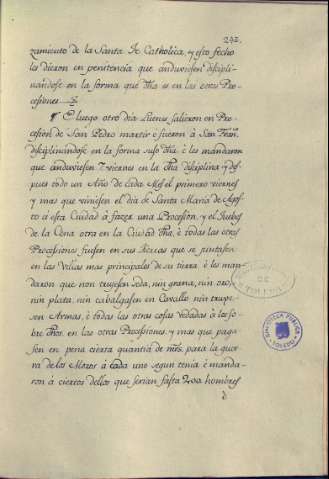 242.
zamiento de la Santa fe Catholica, y esto fecho
les dieron en penitencia que anduviesen discipli-
nandose en la forma que dha es en las otras Pro-
cesiones
¶ E luego otro dia Lunes salieron en Pro-
cesion de San Pedro martir e fueron á San Fran.
disciplinandose en la forma suso dha é les mandaron
que anduviesen 7 viernes en la dha disciplina y des-
pues todo un Año de cada Mes el primero viernes
y mas que viniesen el dia de Santa Maria de Agos-
to á esta Ciudad á fazer una Procesion, y el Jueves
de la Cena otra en la Ciudad dha, é todas las otras
Processiones fuesen en sus tierras que se juntasen
en las Villas mas principales de su tierra é les man-
daron que non trugesen seda, nin grana, nin oro,
nin plata, nin cabalgasen en Cavallo nin truge-
sen Armas, é todas las otras cosas vedadas á los so-
bre dhos. en las otras Procesiones, y mas que paga-
sen en pena cierta quantia de mrs. para la guer-
ra de los Moros á cada uno segun tenia é manda-
ron á ciertos dellos que serian fasta 200 hombres
BIBLIOTECA PUBLICA
TOLEDO